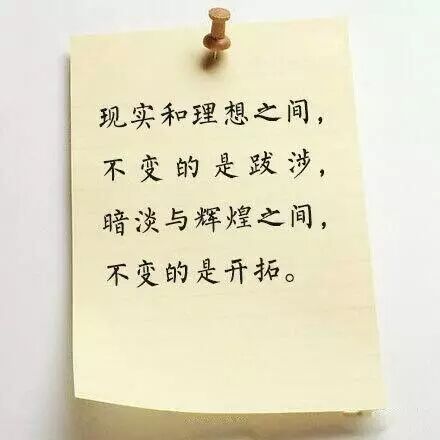 现实和理想之间，
不变的是跋涉，
暗淡与辉煌之间，
不变的是开拓。